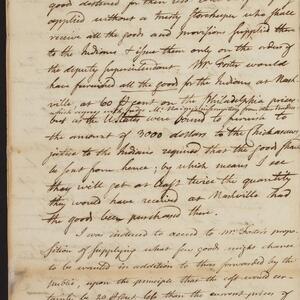 good destined for their use
applied without a Trusty Storekeeper who shall
receive all the goods and provisions supplied them
to the Indians & issue them only on the order of
the deputy superintendant. Mr Foster would
have furnished all the goods for the Indians at Nash
ville, at 60 P Cent on the Philadelphia prices
but as the U States were bound to furnish to
the amount of 3000 dollars to the Chickasaws
justice to the Indians required that the goods should
be sent from hence; by which means I see
they will get at least twice the quantity
they would have received at Nashville had
the goods been purchased there.
I was induced to accede to Mr Foster's propo
sition of supplying what few goods might chance
to be wanted in addition to those forwarded by the
public, upon the principle that the cost would cer
tainly be 20 P Cent less than the